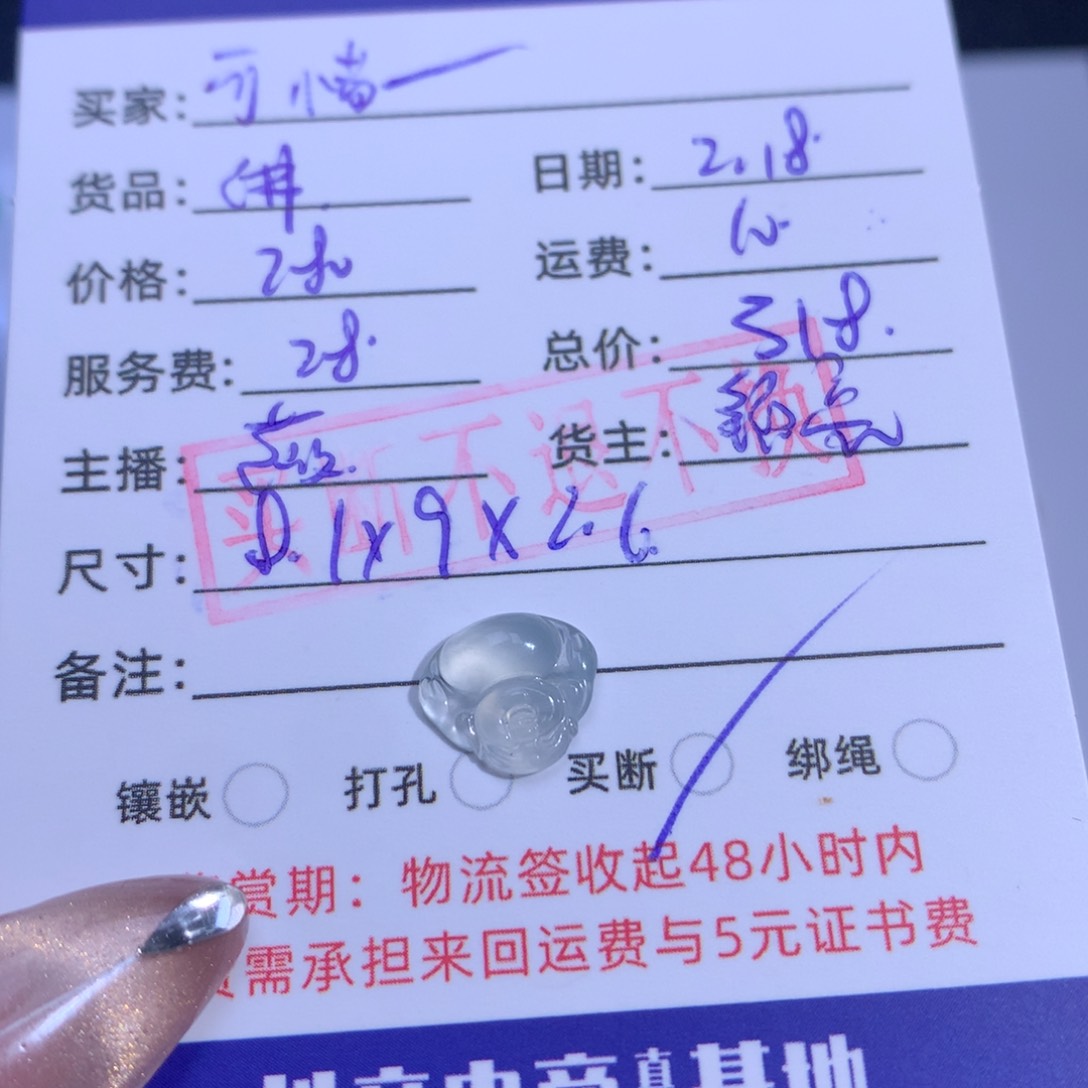 买家:可惜一
货品:佛 日期:2.18
价格:280 运费:10
服务费:28 总价:318.
主播: 货主:
买断不退不换
尺寸: .1x9x2.6
备注:
镶嵌 打孔 买断 绑绳
赏期:物流签收起48小时内
需承担来回运费与5元证书费
电商直基地